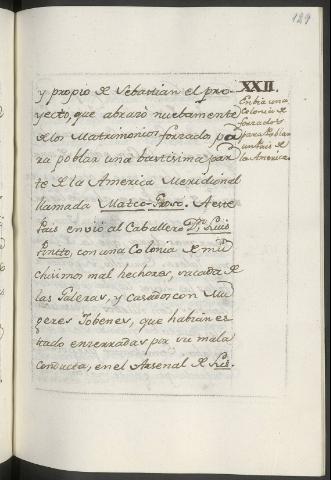 129
y propio de Sebastian el pro-
yecto, que abrazò nuebamente
de los Matrimonios forzados pa
ra poblar una bastisima par
te de la America Meridional
llamada Mateo-Groso. A este
Pais enviò al Caballero Dn. Luis
Pintto, con una Colonia de mu
chisimos mal hechores, sacada de
las Galeras, y casados con Mu
geres Jobenes, que habian es
tado enzerradas por su mala
conducta, en el Arsenal de Lis-
XXII.
Enbia una
Colonia de
forzados
para Poblar
un Pais de
la America